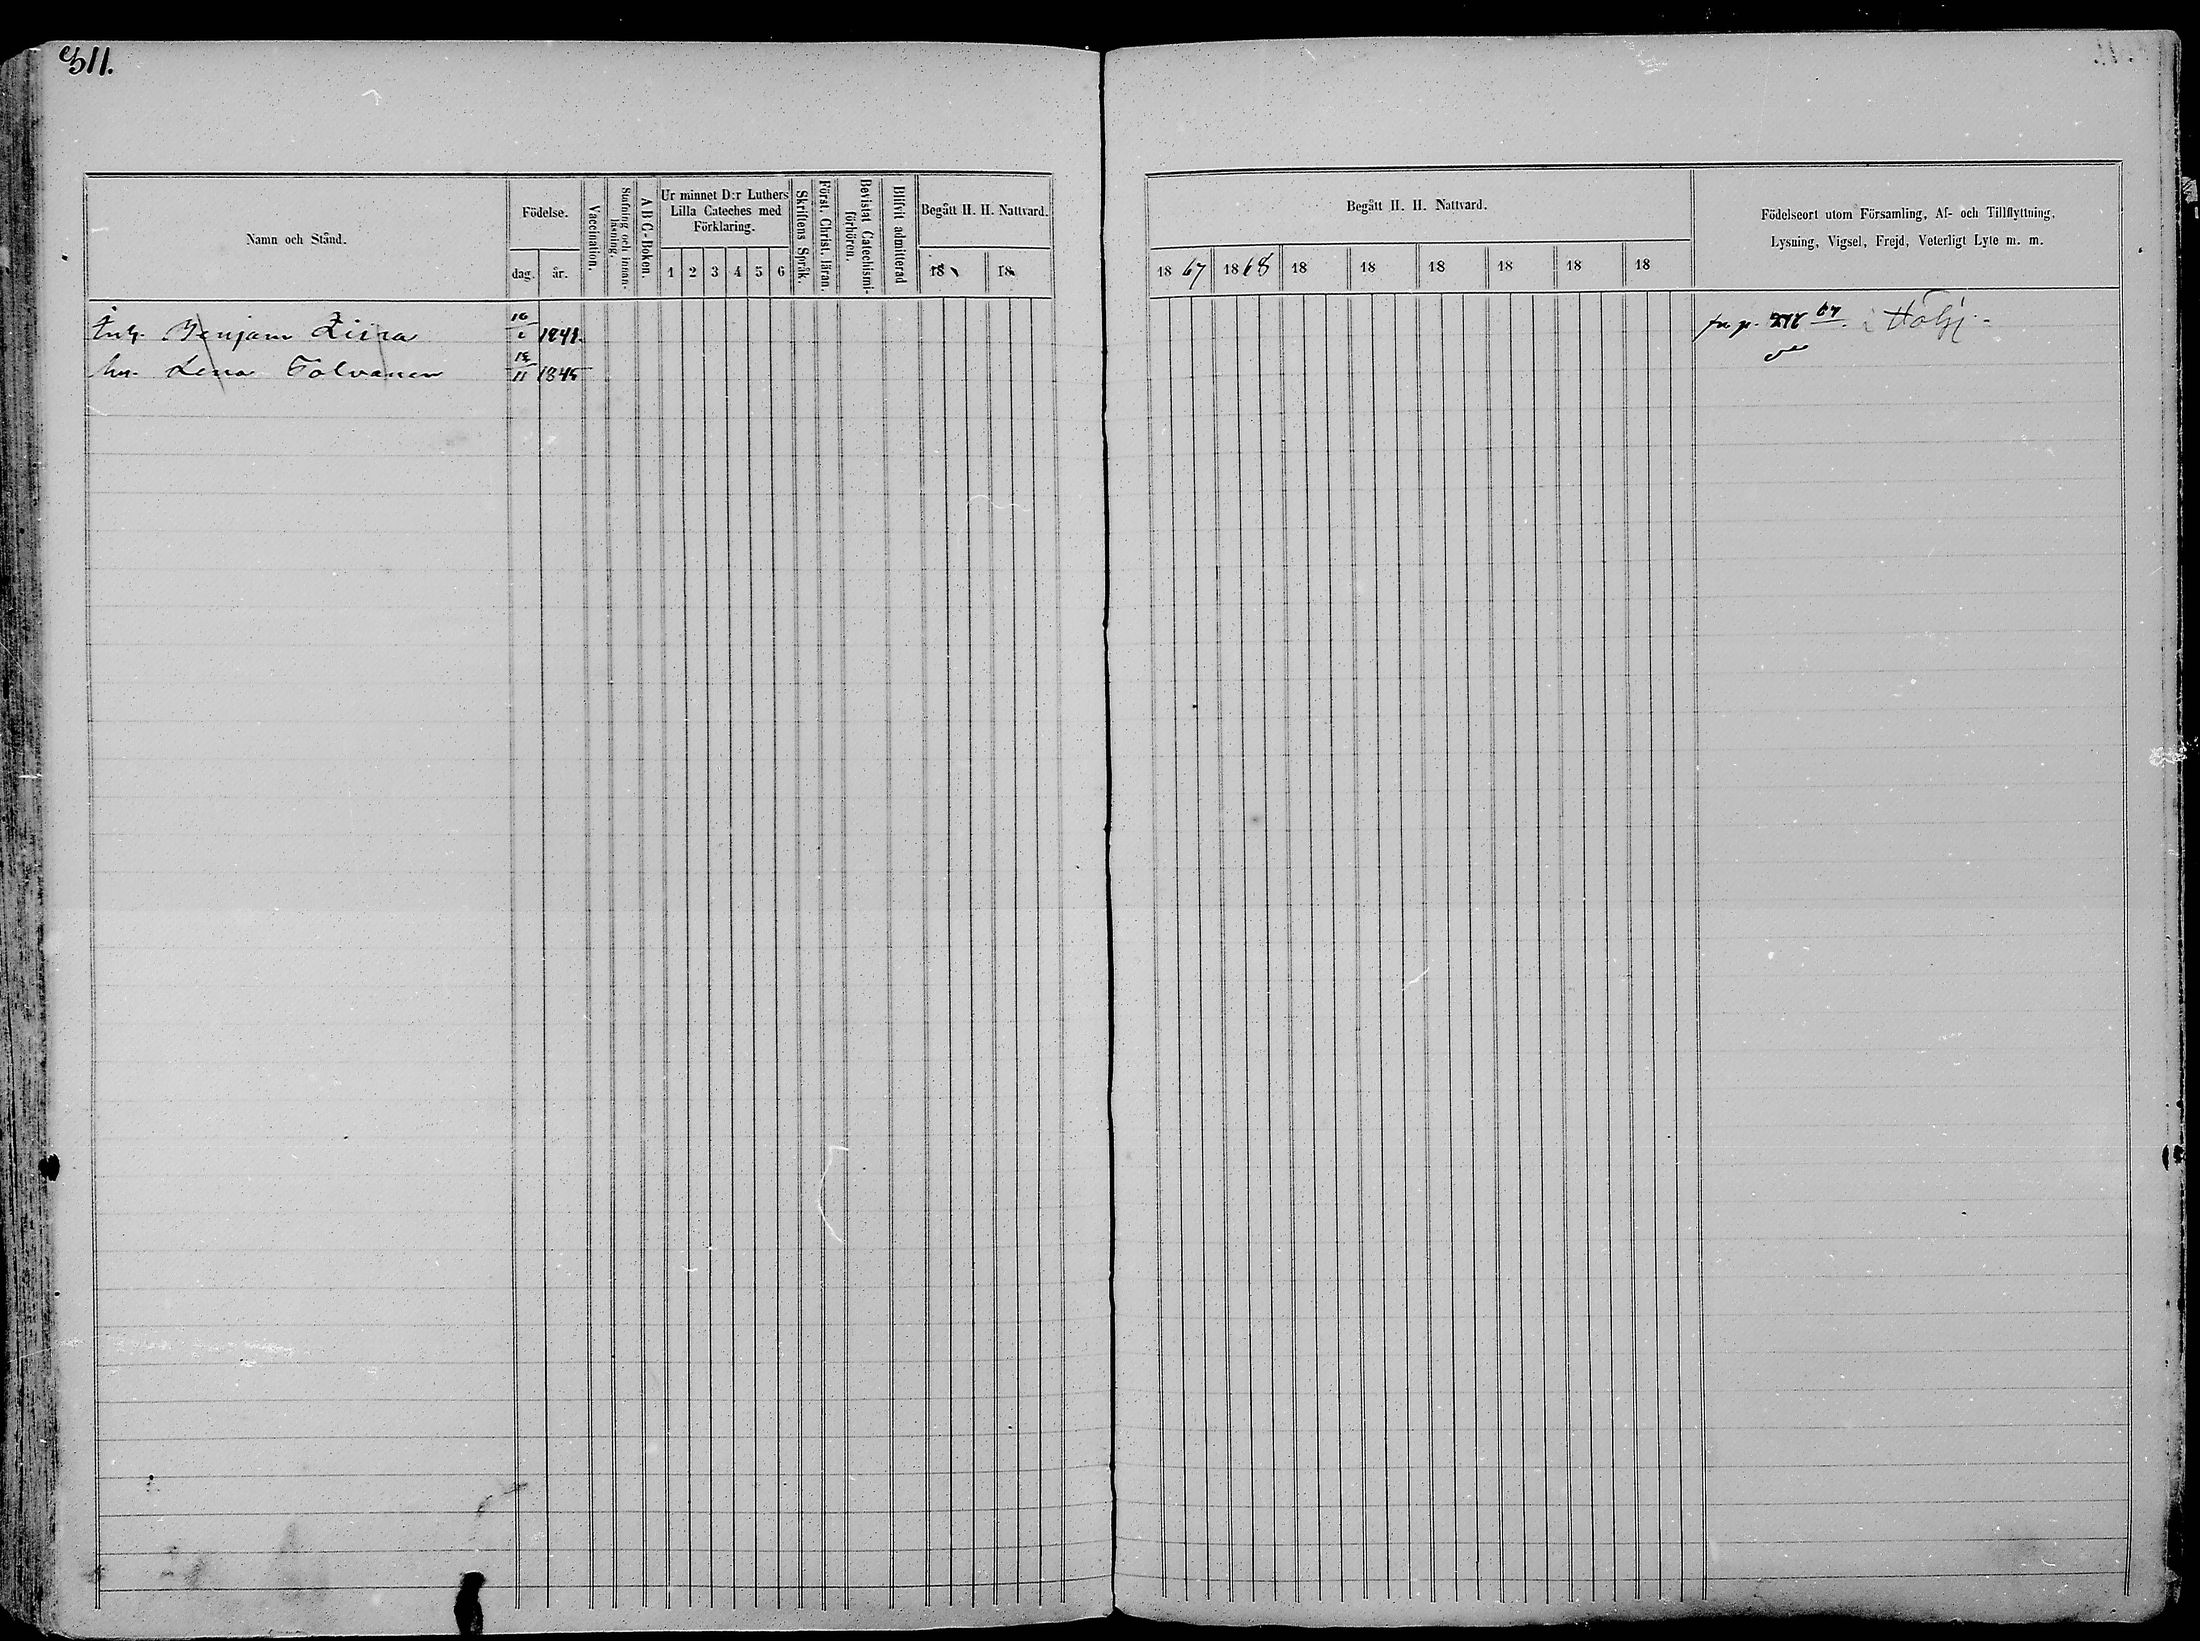 311.
Namn och Stånd.
Födelse.
dag. år.
Vaccination.
Stafning och innan-
läsning.
A B C-Boken.
Ur minnet D:r Luthers
Lilla Cateches med
Förklaring.
1 2 3 4 5 6
Skriftens Språk.
Först. Christ. läran.
Bevistat Catechismi-
förhören.
Blifvit admitterad
Begått H. H. Nattvard.
18 18
Inh. Benjam
1841.
hu. Lena Tolvanen
11 1845
Begått H. H. Nattvard.
18 67 18 68 18 18 18 18 18 18
Födelseort utom Församling, Af- och Tillflyttning,
Lysning, Vigsel, Frejd, Veterligt Lyte m. m.
fr. p. 67. i